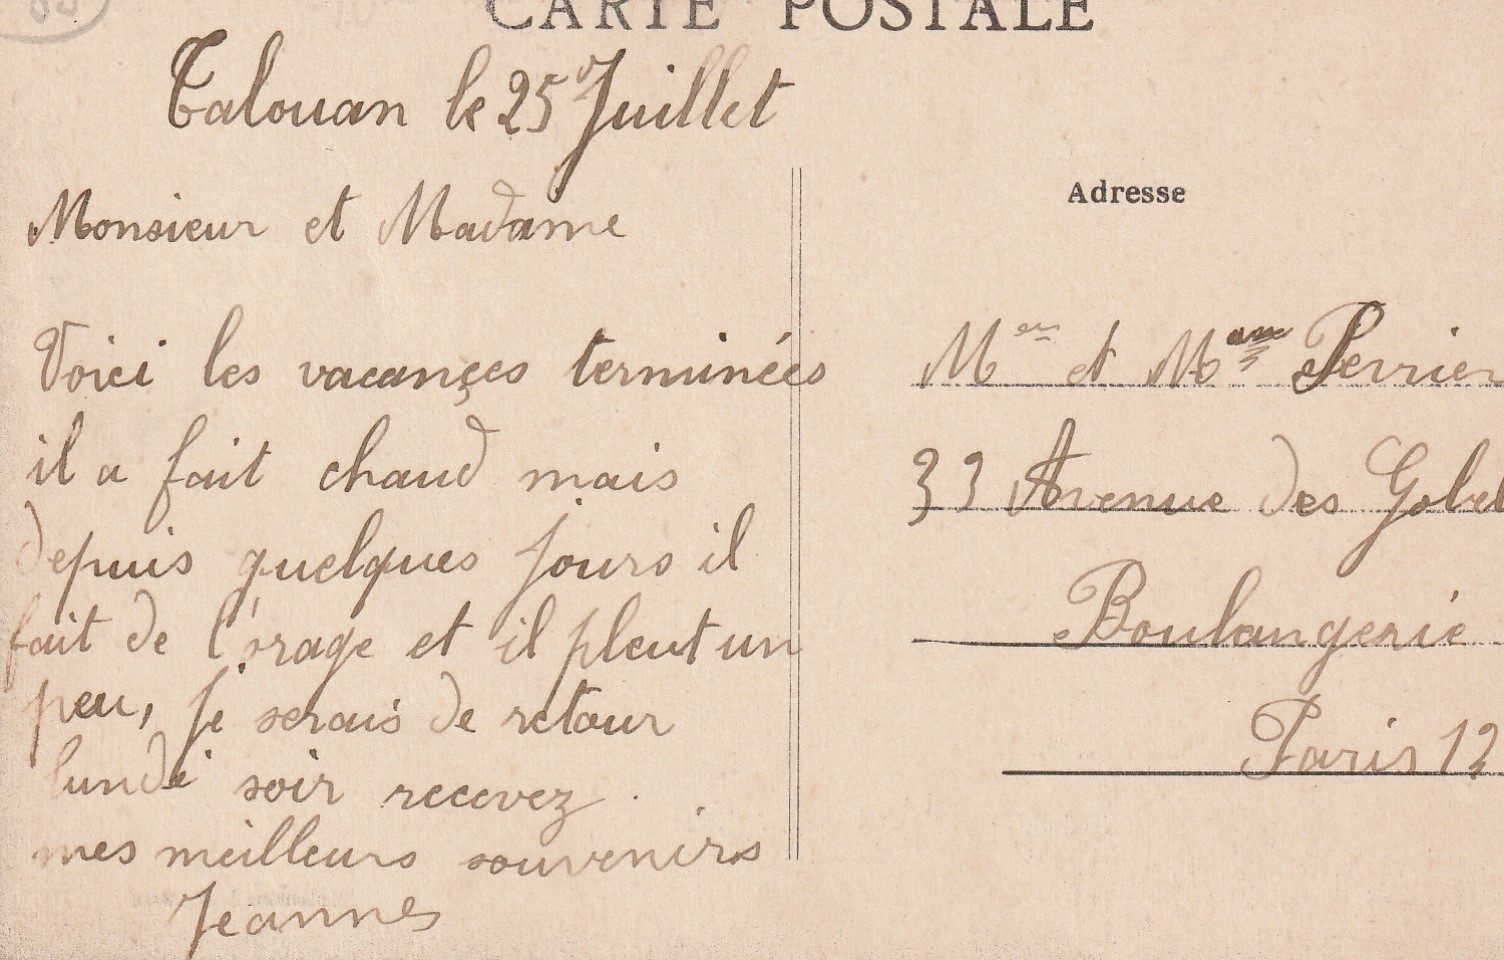 CARTE POSTALE
Talouan le 25 Juillet
Monsieur et Madame
Voici les vacançes terminées
il a fait chaud mais
depuis quelques jours il
fait de l'orage et il pleut un
peu, je serais de retour
lundi soir recevez
mes meilleurs souvenirs
Jeannes
Adresse
Mer et Mame Perrier
33 Avenue des Gobel
Boulangerie
Paris 13